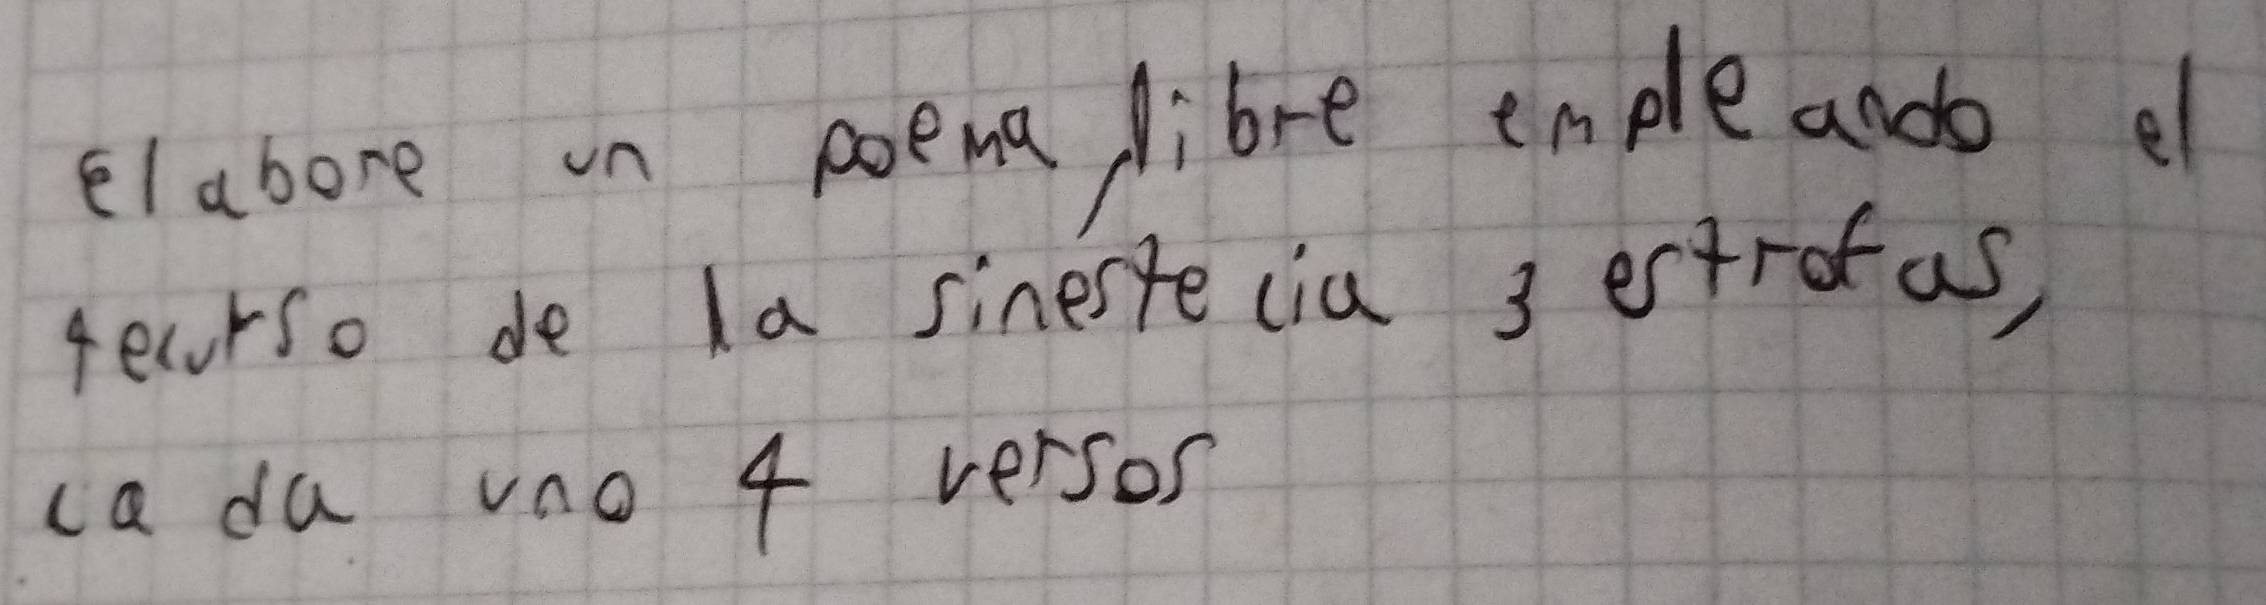 elabore un poema, libre empleando el
recurso de la sinestecia 3 estrofas,
cada uno 4 versos